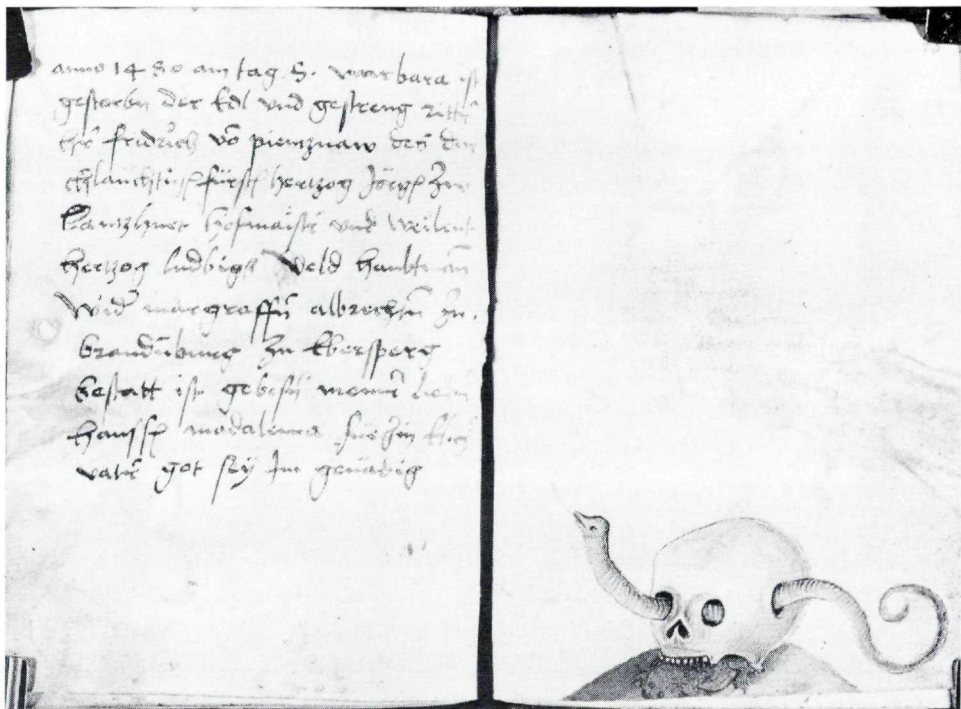 anno 1480 am tag S. warbara ist
gestorbn der Edl vnd gestreng ritter
her fridrich vō pientznaw des dur
chlauchtign fürstn hertzog Jörgn zw
Lantzhuet hofmaistr vnd weilent
hertzog ludbigs veld haubtman
wider margraffn albrechtn zu
brandnburg zu Ebersperg
bestatt ist gebesn
hanssn madalenna Jr
vater got sey Im genadig